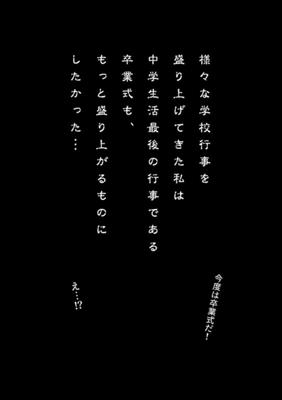 様々な学校行事を
盛り上げてきた私は
中学生活最後の行事である
卒業式も、
もっと盛り上がるものに
したかった…
今度は卒業式だ！
え…!?